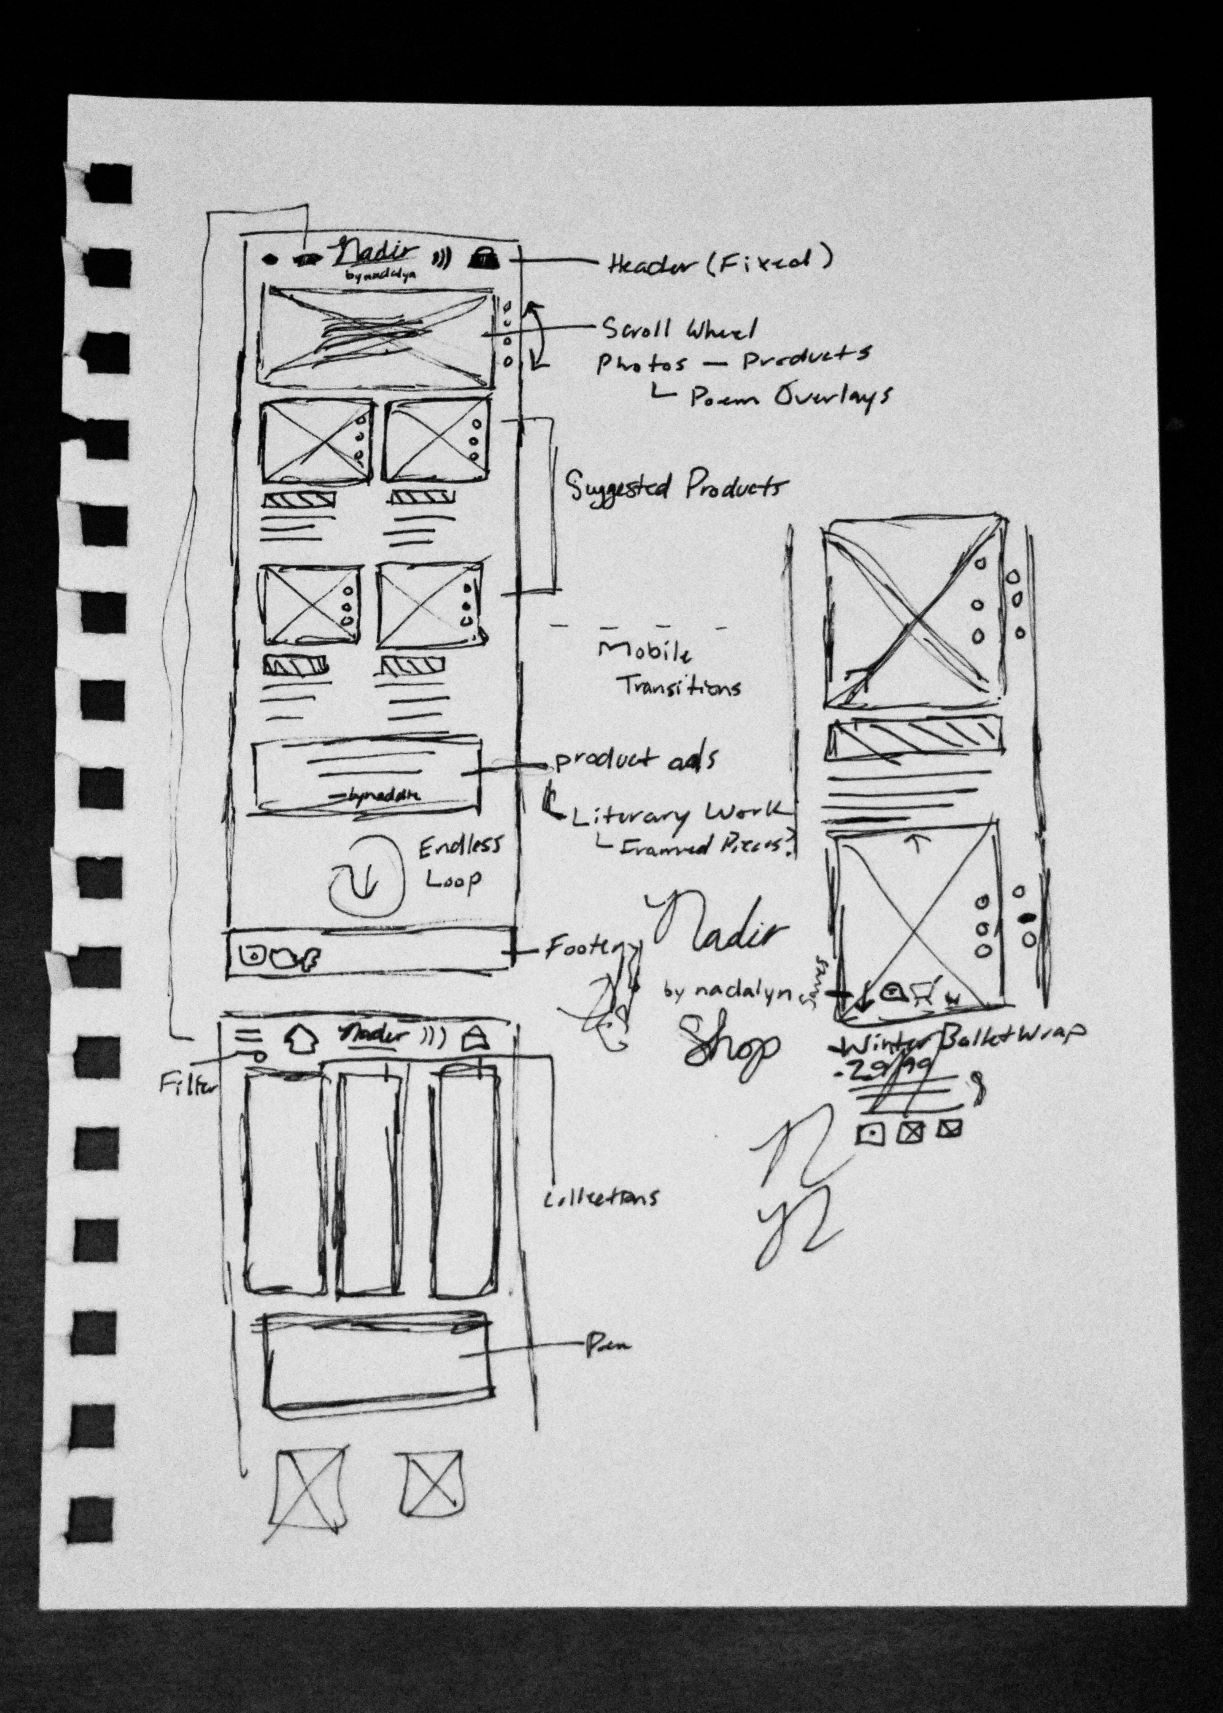 Nadir
by nadalyn
Header (Fixed)
Scroll Wheel
Photos — Products
Poem Overlays
Suggested Products
Mobile
Transitions
product ads
Literary Work
Framed Pieces?
Endless
Loop
Footer
Nadir
by nadalyn
Shop
Winter Ballet Wrap
29.99
Nadir
Filter
Collections